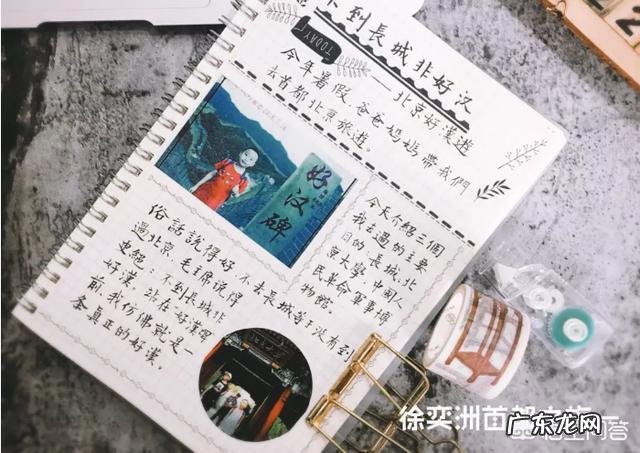 不到長城非好汉
TODAY!
——北京好漢遊
今年暑假,爸爸妈媽帶我們
去首都北京旅遊。
好汉碑
今天介紹三個
我去過的主要
目的:長城、北
京大學、中國人
民革命軍事博
物館。
俗話說得好:不去長城等于没有到
過北京,毛主席說得
更絕:不到長城非
好漢,站在好漢碑
前我仿佛就是一
条真正的好漢。
徐奕洲首都之旅一
广东龙网